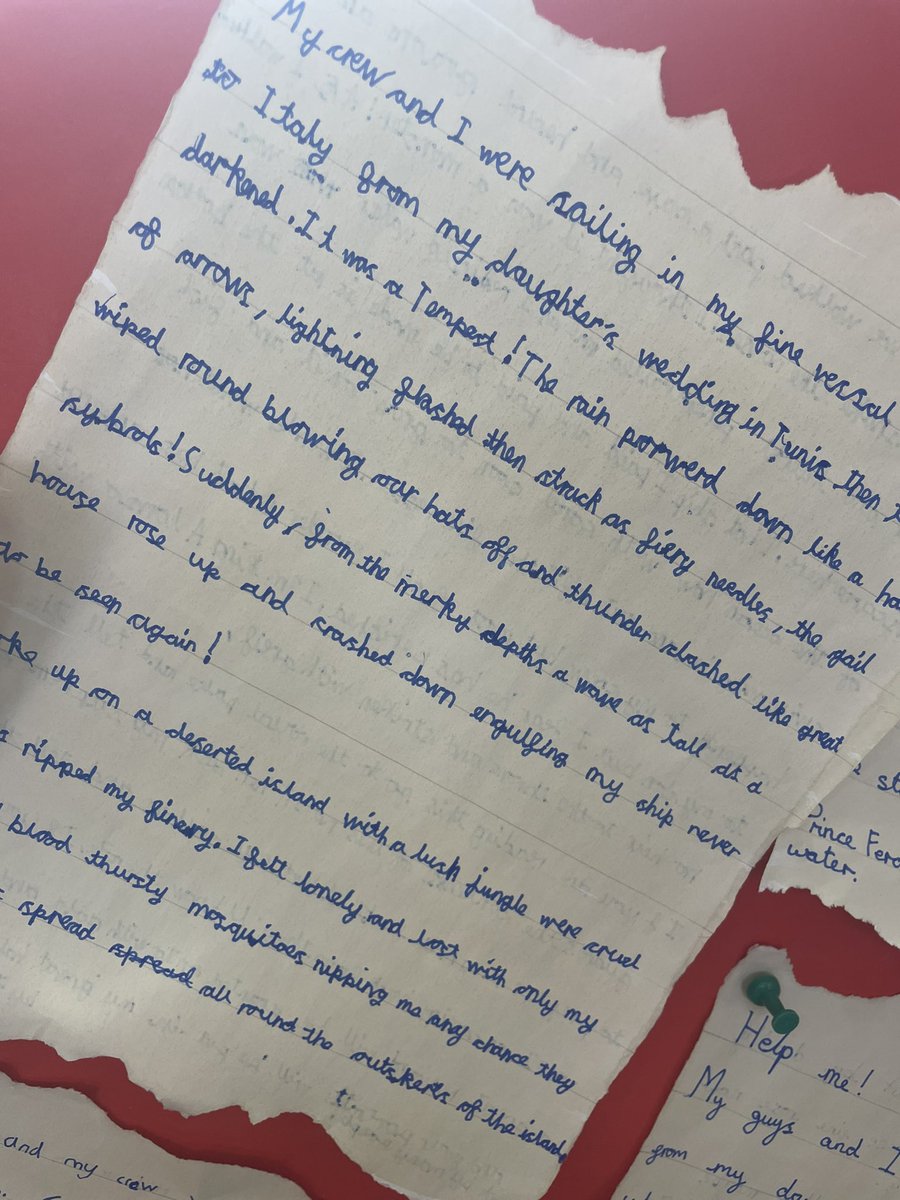 My crew and I were sailing in my fine vessal
to Italy from my daughter's wedding in Tunis then
darkened. It was a Tempest! The rain porwerd down like a
of arrows, lightning flashed then struck as fiery needles, the gail
wiped round blowing our hats off and thunder clashed like great
symbols! Suddenly, from the merky depths a wave as tall as a
house rose up and crashed down engulfing my ship never
to be seen again!
up on a deserted island with a lush jungle were cruel
ripped my finery. I felt lonely and lost with only my
blood thursty mosquitoes nipping me any chance they
spread spread all round the outskerts of the island,
t
Prince
water.
Help me!
My guys and I
from my
and my crew